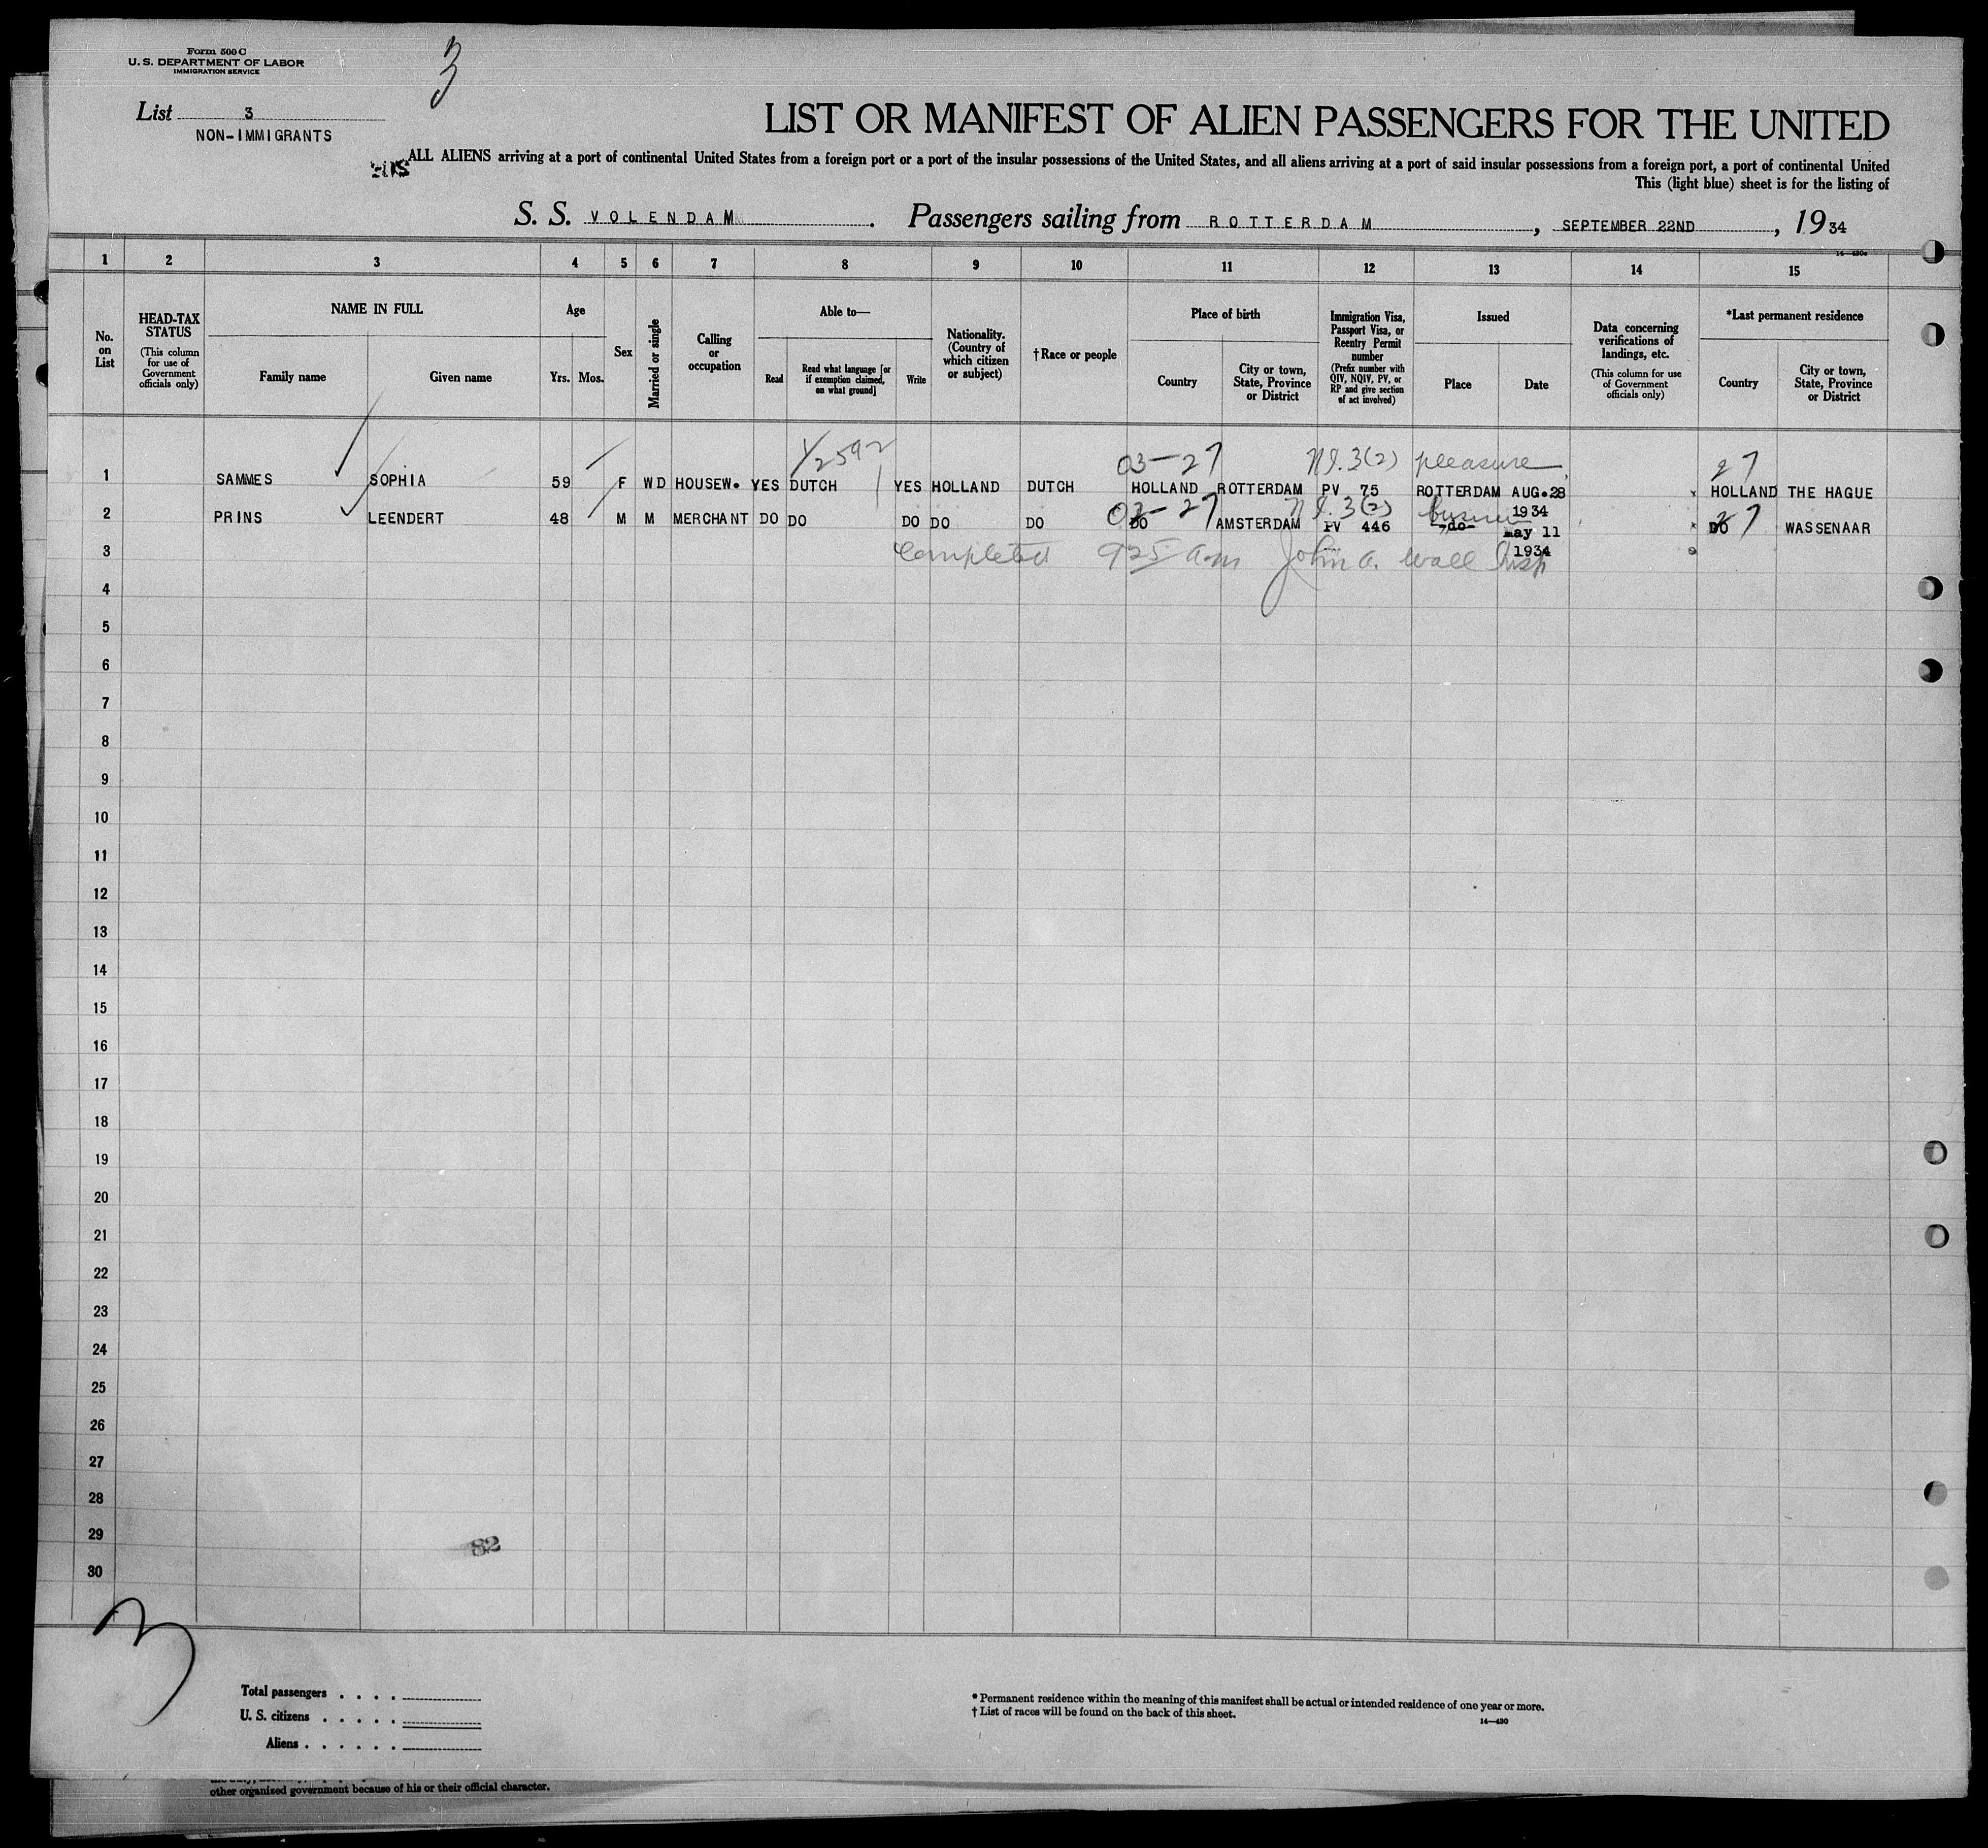 Form 500 C
U. S. DEPARTMENT OF LABOR
IMMIGRATION SERVICE
3
List 3
NON-IMMIGRANTS
LIST OR MANIFEST OF ALIEN PASSENGERS FOR THE UNITED
ALL ALIENS arriving at a port of continental United States from a foreign port or a port of the insular possessions of the United States, and all aliens arriving at a port of said insular possessions from a foreign port, a port of continental United
This (light blue) sheet is for the listing of
S. S. VOLENDAM. Passengers sailing from ROTTERDAM, SEPTEMBER 22ND, 1934
1 2 3 4 5 6 7 8 9 10 11 12 13 14 15
No. on List
HEAD-TAX STATUS
(This column for use of Government officials only)
NAME IN FULL
Family name Given name
Age
Yrs. Mos.
Sex
Married or single
Calling or occupation
Able to—
Read
Read what language [or if exemption claimed, on what ground]
Write
Nationality. (Country of which citizen or subject)
†Race or people
Place of birth
Country
City or town, State, Province or District
Immigration Visa, Passport Visa, or Reentry Permit number
(Prefix number with QIV, NQIV, PV, or RP and give section of act involved)
Issued
Place Date
Data concerning verifications of landings, etc.
(This column for use of Government officials only)
*Last permanent residence
Country
City or town, State, Province or District
03-27 3(2) pleasure 27
1 SAMMES SOPHIA 59 F WD HOUSEW. YES DUTCH YES HOLLAND DUTCH HOLLAND ROTTERDAM PV 75 ROTTERDAM AUG.28 1934 HOLLAND THE HAGUE
03-27 3(2) business 27
2 PRINS LEENDERT 48 M M MERCHANT DO DO DO DO DO DO AMSTERDAM PV 446 do May 11 1934 DO WASSENAAR
3 Completed 925 am John A. Wall Insp
4
5
6
7
8
9
10
11
12
13
14
15
16
17
18
19
20
21
22
23
24
25
26
27
28
29
30
82
3
Total passengers . . . .
U. S. citizens . . . . .
Aliens . . . . . .
* Permanent residence within the meaning of this manifest shall be actual or intended residence of one year or more.
† List of races will be found on the back of this sheet.
14—430
other organized government because of his or their official character.